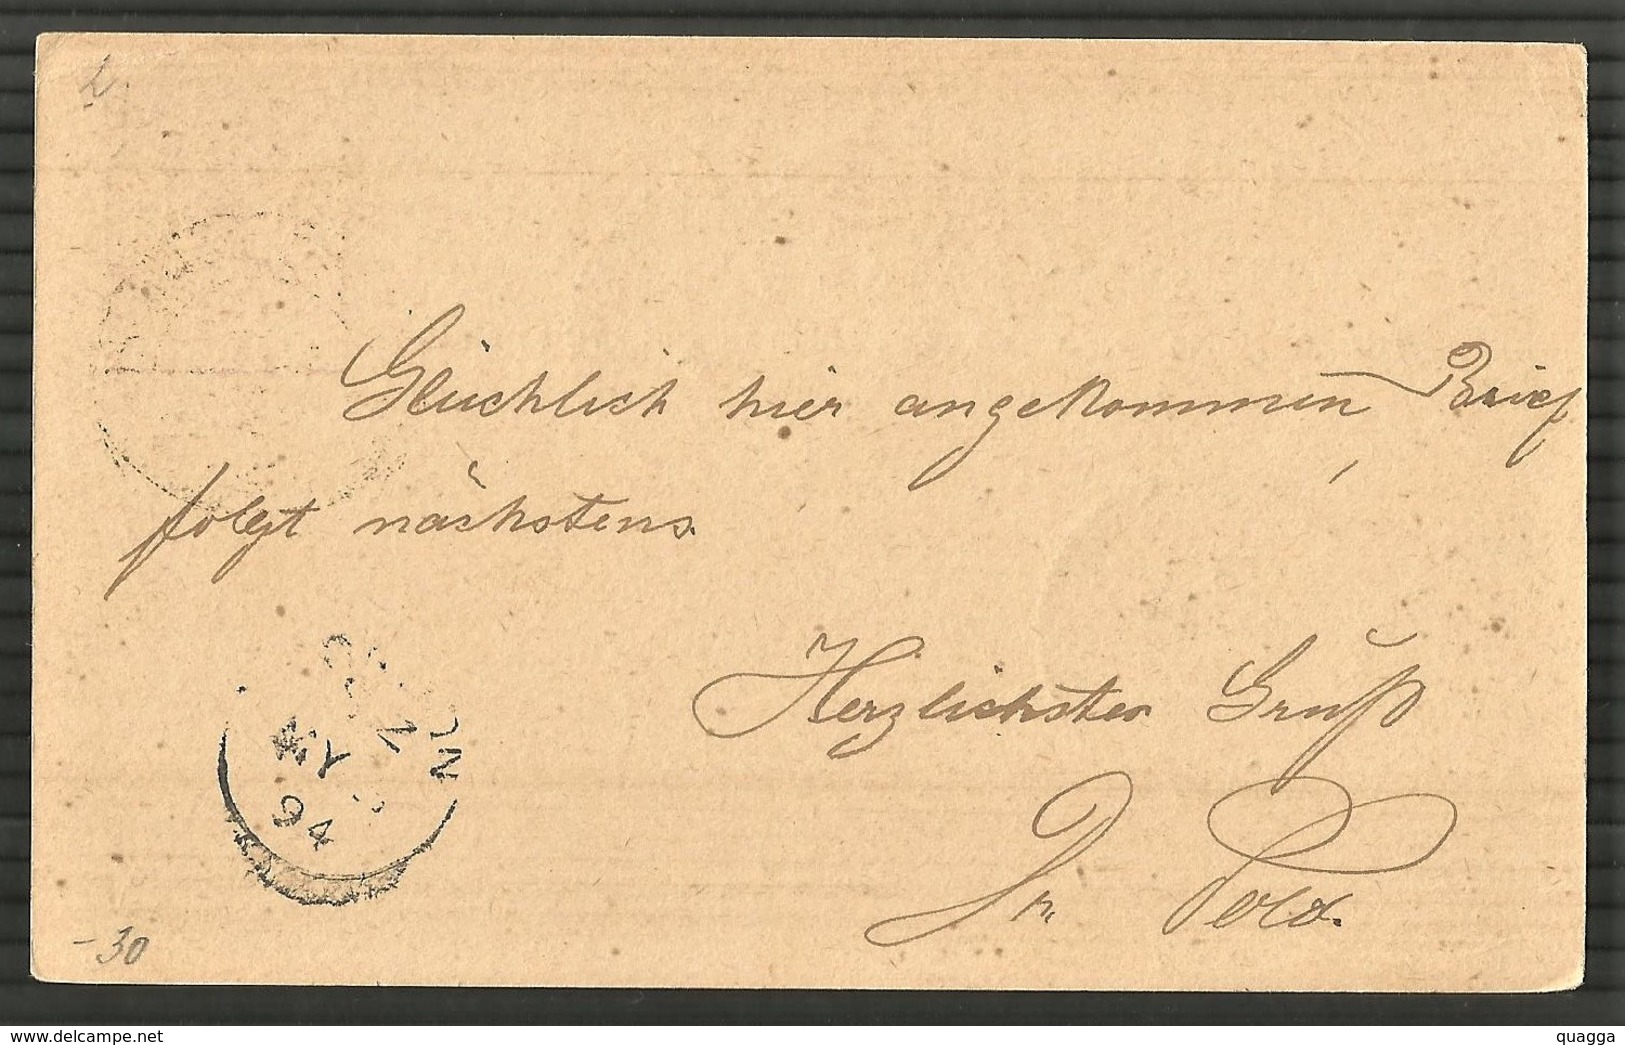 Glücklich hier angekommen, Brief
folgt nächstens.
Herzlichster Gruß
Dr. Pold.
MY
94
-30
© DELCAMPE.NET
quagga